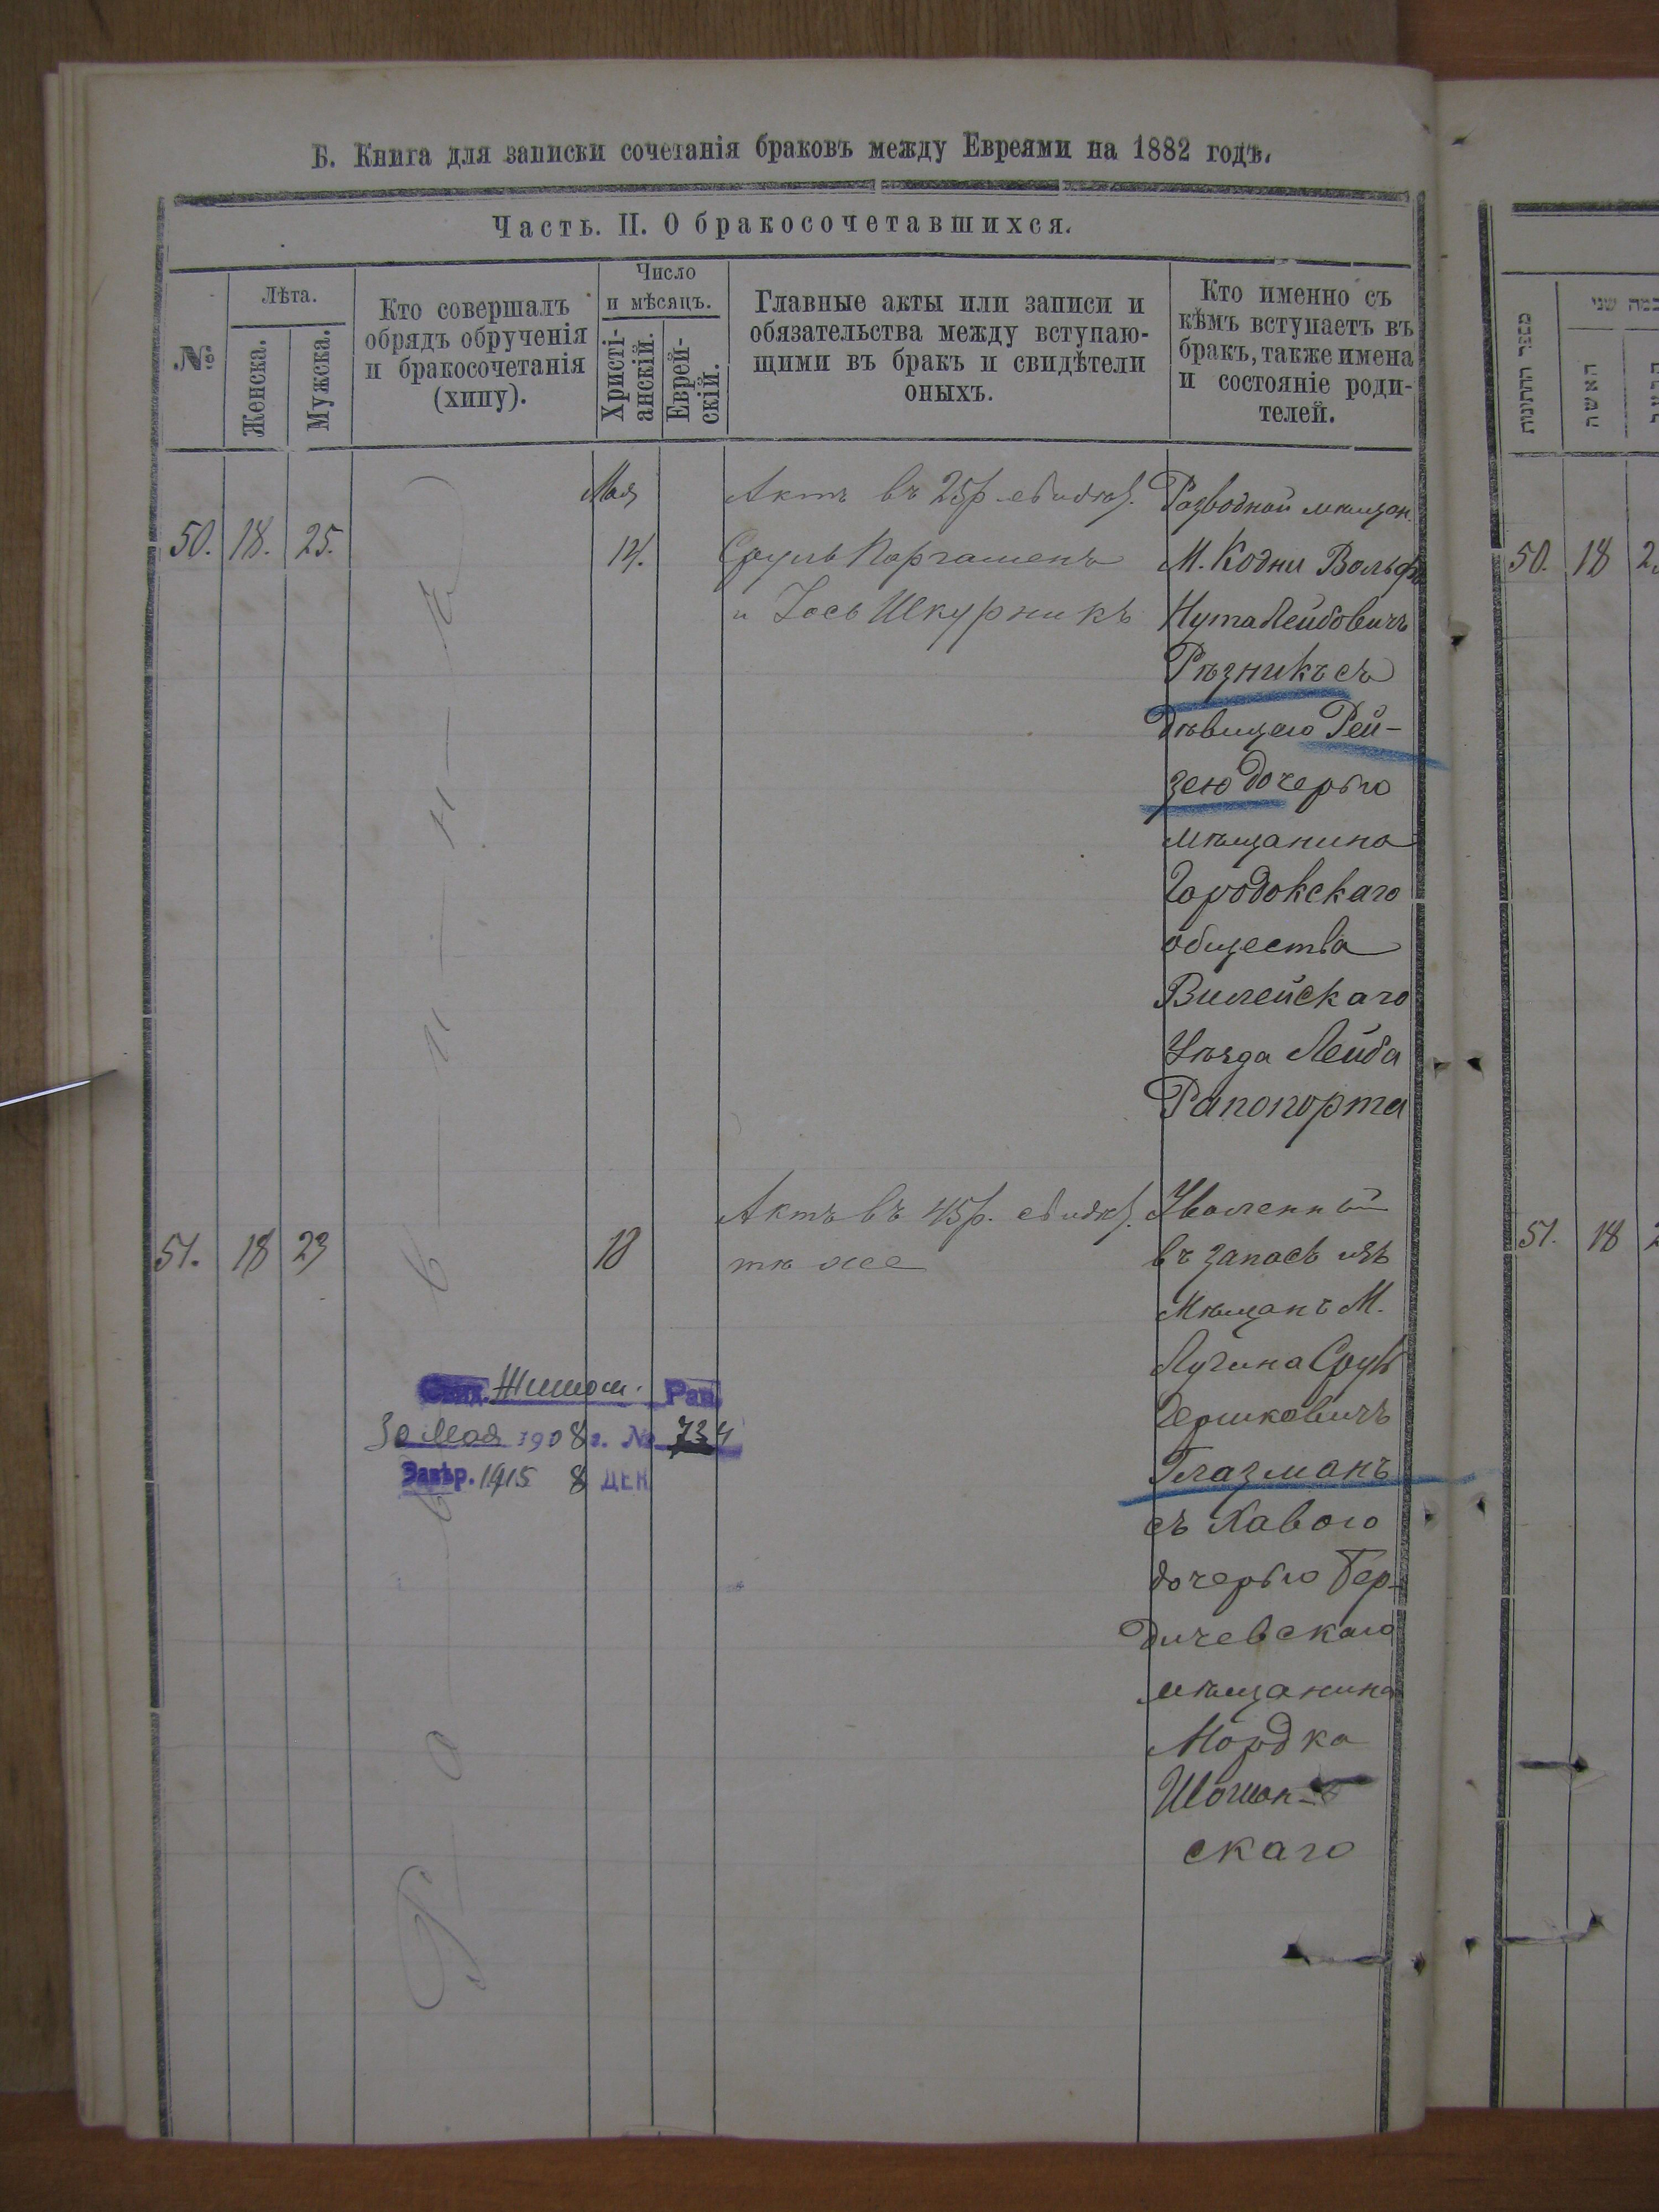 Б. Книга для записки сочетанія браковъ между Евреями на 1882 годъ.
Часть. II. О бракосочетавшихся.
№
Лѣта.
Женска.
Мужска.
Кто совершалъ
обрядъ обрученія
и бракосочетанія
(хипу).
Число
и мѣсяцъ.
Христі-
анскій.
Еврей-
скій.
Главные акты или записи и
обязательства между вступаю-
щими въ бракъ и свидѣтели
оныхъ.
Кто именно съ
кѣмъ вступаетъ въ
бракъ, также имена
и состояніе роди-
телей.
50. 18. 25.
Мая
14.
Актъ въ 25р свидѣ.
Сруль Паргаменъ
и Іось Шкурникъ
Разводной мѣщан.
М. Кодни Вольфъ
Нута Лейбовичъ
Рѣзникъ съ
дѣвицею Рей-
зею дочерью
мѣщанина
Городокскаго
общества
Вилейскаго
Уѣзда Лейба
Рапопорта
51. 18 23
18
Актъ въ 45р. свидѣ.
тѣ же
Уволенный
въ запасъ изъ
Мѣщанъ М.
Лугина Сруль
Гершковичъ
Глазманъ
съ Хавою
дочерью Бер-
дичевскаго
мѣщанина
Мордка
скаго
Р а в в и н ъ
Житом. Рав
30 Мая 1908 г. № 734
Завѣр. 1915 8 ДЕК
מספר החתונות
האשה
50. 18
51. 18